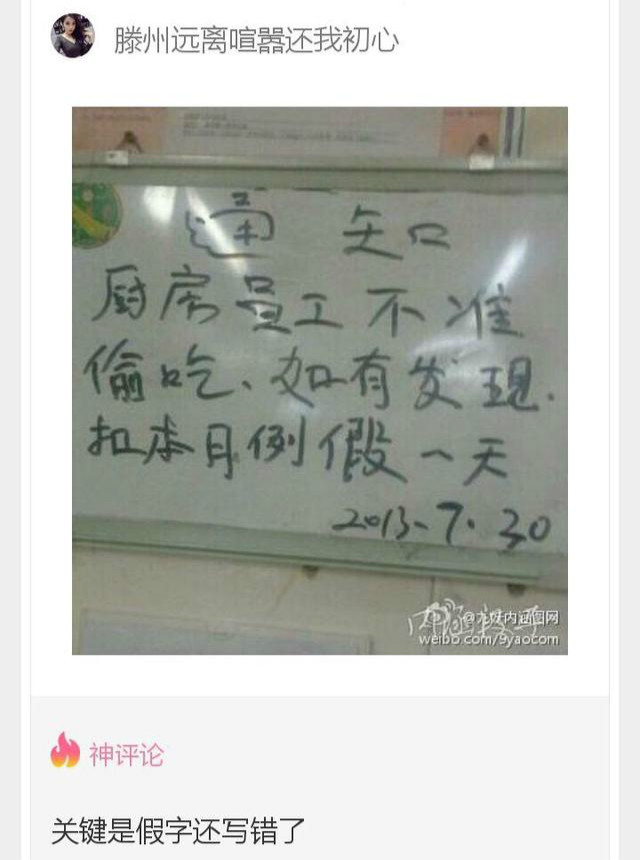 滕州远离喧嚣还我初心
通 知
厨房员工不准
偷吃、如有发现.
扣本月例假一天
2013-7.30
weibo.com/9yaocom
神评论
关键是假字还写错了